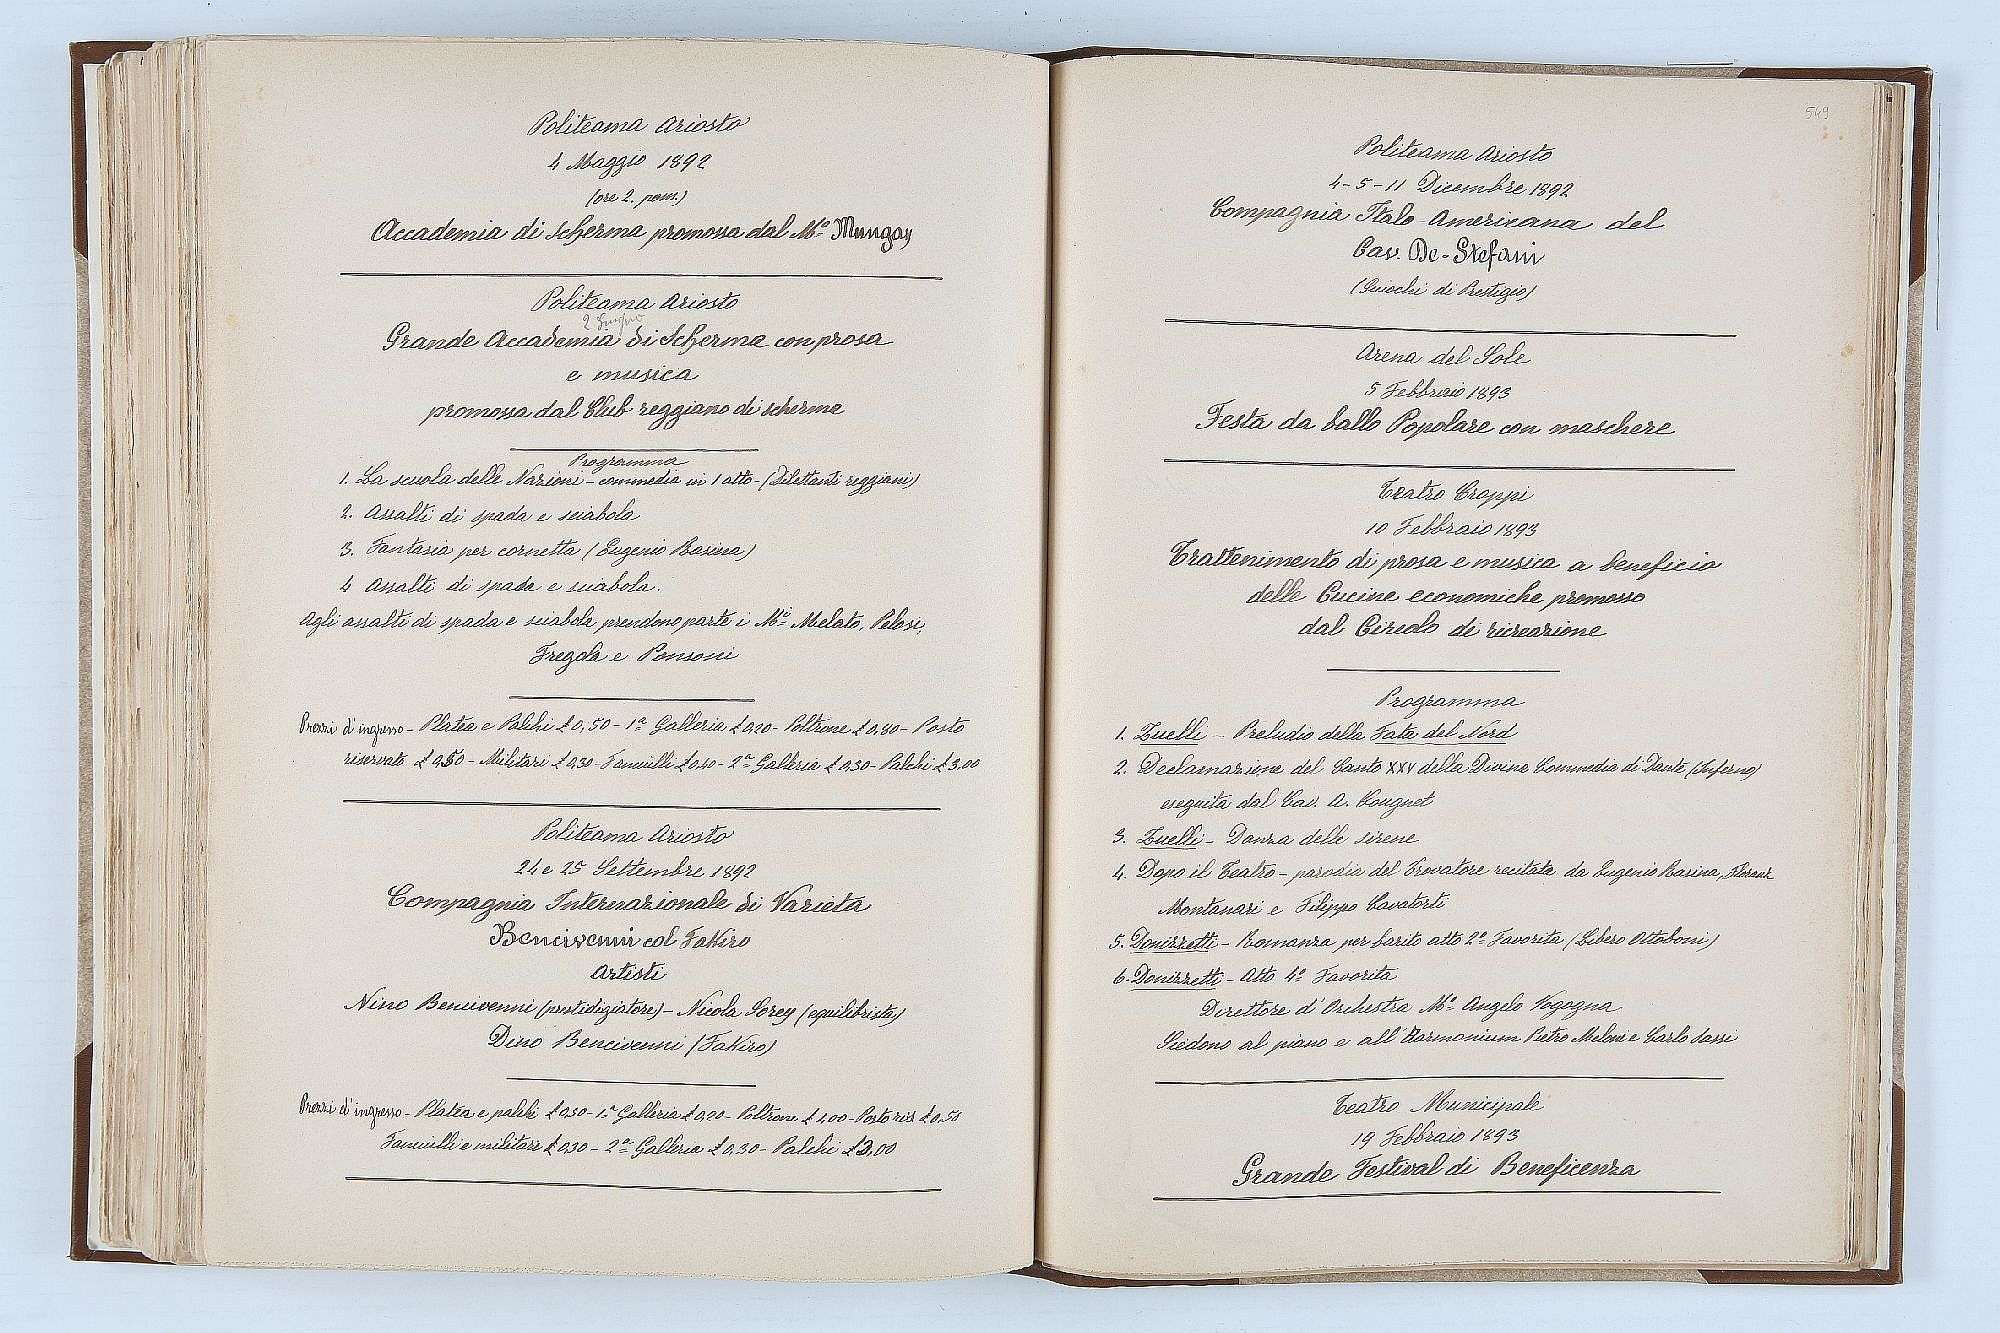 Politeama Ariosto
4 Maggio 1892
(ore 2. pom.)
Accademia di scherma promossa dal Mº Mungay
Politeama Ariosto
2 Giugno
Grande Accademia di Scherma con prosa
e musica
promossa dal Club reggiano di scherma
Programma
1. La scuola delle Nazioni - commedia in 1 atto - (Dilettanti reggiani)
2. Assalti di spada e sciabola
3. Fantasia per cornetta (Eugenio Basina)
4 Assalti di spada e sciabola.
Agli assalti di spada e sciabola prendono parte i Mⁱ Melato, Pelosi,
Fregola e Ponsoni
Prezzi d'ingresso - Platea e Palchi £ 0,50 - 1ª Galleria £ 0,20 - Poltrone £ 0,80 - Posto
riservato £ 0,50 - Militari £ 0,30 - Fanciulli £ 0,40 - 2ª Galleria £ 0,30 - Palchi £ 3,00
Politeama Ariosto
24 e 25 Settembre 1892
Compagnia Internazionale di Varieta
Bencivenni col Fakiro
Artisti
Nino Bencivenni (prestidigiatore) - Nicola Sorey (equilibrista)
Dino Bencivenni (Fakiro)
Prezzi d'ingresso - Platea e palchi £ 0,50 - 1ª Galleria £ 0,20 - Poltrone £ 1,00 - Posto ris £ 0,50
Fanciulli e militari £ 0,30 - 2ª Galleria £ 0,30 - Palchi £ 3,00
549
Politeama Ariosto
4 - 5 - 11 Dicembre 1892
Compagnia Italo-Americana del
Cav. De-Stefani
(Giuochi di Prestigio)
Arena del Sole
5 Febbraio 1893
Festa da ballo Popolare con maschere
Teatro Croppi
10 Febbraio 1893
Trattenimento di prosa e musica a beneficio
delle Cucine economiche promosso
dal Circolo di ricreazione
Programma
1. Zuelli - Preludio della Fata del Nord
2. Declamazione del Canto XXV della Divina Commedia di Dante (Inferno)
eseguita dal Cav. A. Cougnet
3. Zuelli - Danza delle sirene
4. Dopo il Teatro - parodia del Trovatore recitata da Eugenio Basina,
Montanari e Filippo Cavatorti
5. Donizzetti - Romanza per barito atto 2º Favorita (Libero Ottoboni)
6. Donizzetti - Atto 4º Favorita
Direttore d'Orchestra Mº Angelo Vogogna
Siedono al piano e all'Harmonium Pietro Meloni e Carlo Sassi
Teatro Municipale
19 Febbraio 1893
Grande Festival di Beneficenza